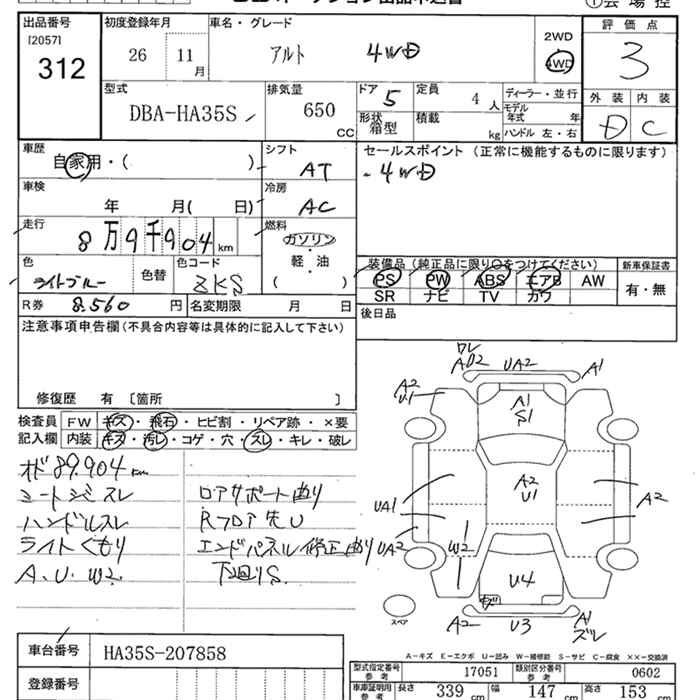 ①会場控
出品番号 初度登録年月 車名・グレード 評価点
[2057]
312
26 11月 アルト 4WD
2WD
4WD
3
型式 排気量 ドア 定員 ディーラー・並行 外装 内装
DBA-HA35S 650 CC 5 4人 モデル年式 年 D C
形状 箱型 積載 kg ハンドル 左・右
車歴 シフト セールスポイント (正常に機能するものに限ります)
自家用・( ) AT 4WD
車検 冷房
年 月( 日) AC
走行 燃料
8万9千904km ガソリン・軽・油 ( )
装備品(純正品に限り○をつけてください) 新車保証書
PS PW ABS エアB AW 有・無
SR ナビ TV カワ
色 色替 色コード
ライトブルー ZKS
R券 8,560円 名変期限 月 日 後日品
注意事項申告欄(不具合内容等は具体的に記入して下さい)
修復歴 有 〔箇所 〕
検査員 FW キズ・飛石・ヒビ割・リペア跡・×要
記入欄 内装 キズ・汚レ・コゲ・穴・スレ・キレ・破レ
オド89,904km
シートジミスレ ロアサポート曲り
ハンドルスレ Rフロア先U
ライトくもり エンドパネル修正曲り
A.U.W2. 下廻りS.
ワレ
AD2 UA2 A1
A2
U1
A1
S1
A2
U1
UA1 A2
UA2 W2
U4
キズ
A2 U3 A1
ズレ
スペア
A-キズ E-エクボ U-凹み W-補修跡 S-サビ C-腐食 ××-交換済
車台番号 HA35S-207858
登録番号
型式指定番号 参考 17051 類別区分番号 参考 0602
車庫証明用 参考 長さ 339cm 幅 147cm 高さ 153cm